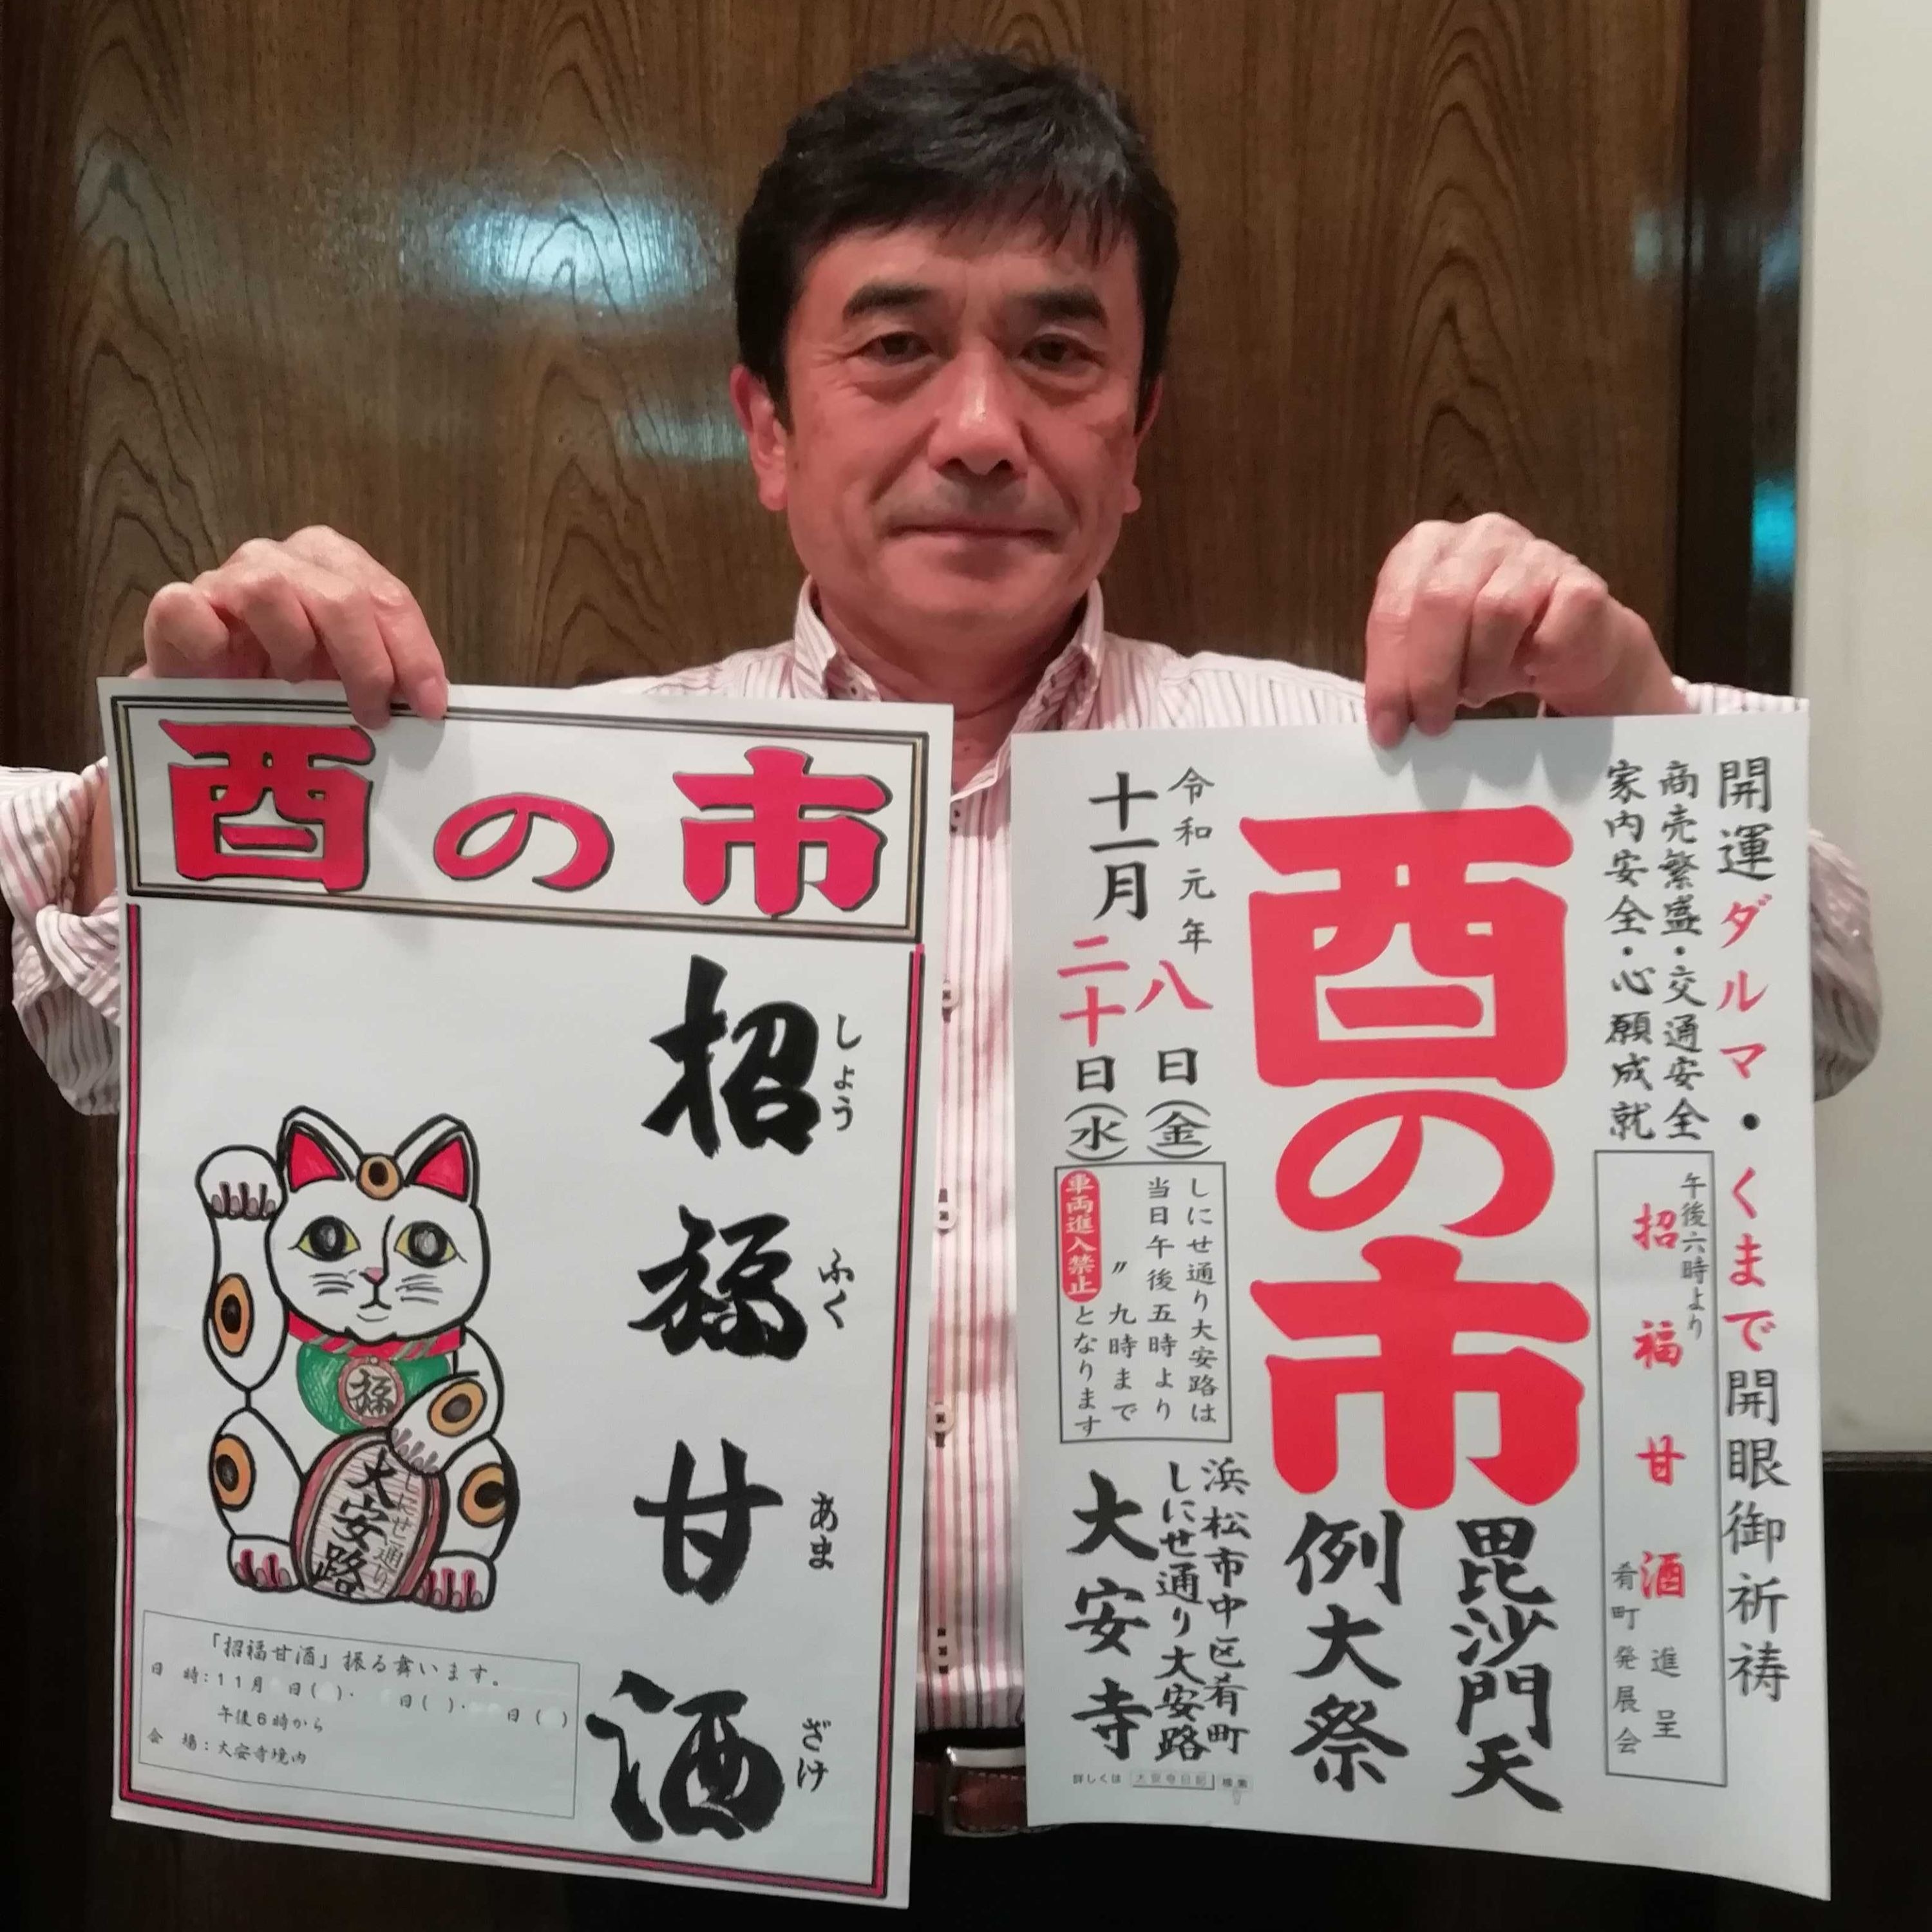 酉の市
招福甘酒
しょう
ふく
あま
ざけ
福
しにせ通り
大安路
「招福甘酒」振る舞います。
日 時:11月 日( )・ 日( )・ 日( )
午後6時から
会 場:大安寺境内
開運ダルマ・くまで開眼御祈祷
商売繁盛・交通安全
家内安全・心願成就
午後六時より
招福甘酒進呈
肴町発展会
酉の市
毘沙門天
例大祭
令和元年
十一月
八日(金)
二十日(水)
しにせ通り大安路は
当日午後五時より
〃九時まで
車両進入禁止となります
浜松市中区肴町
しにせ通り大安路
大安寺
詳しくは 大安寺日記 検索